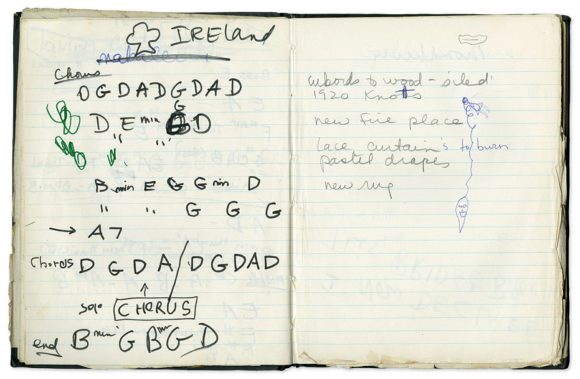 IRELAND
Chorus
D G D A D G D A D
G
D E min G D
" " " "
B min E G G min D
" " G G G
→ A7
Chorus D G D A / D G D A D
↑
solo CHORUS
end B min G B min G D
to wood -
1920 Knotts
new fire place
lace curtains to burn
pastel drapes
new rug